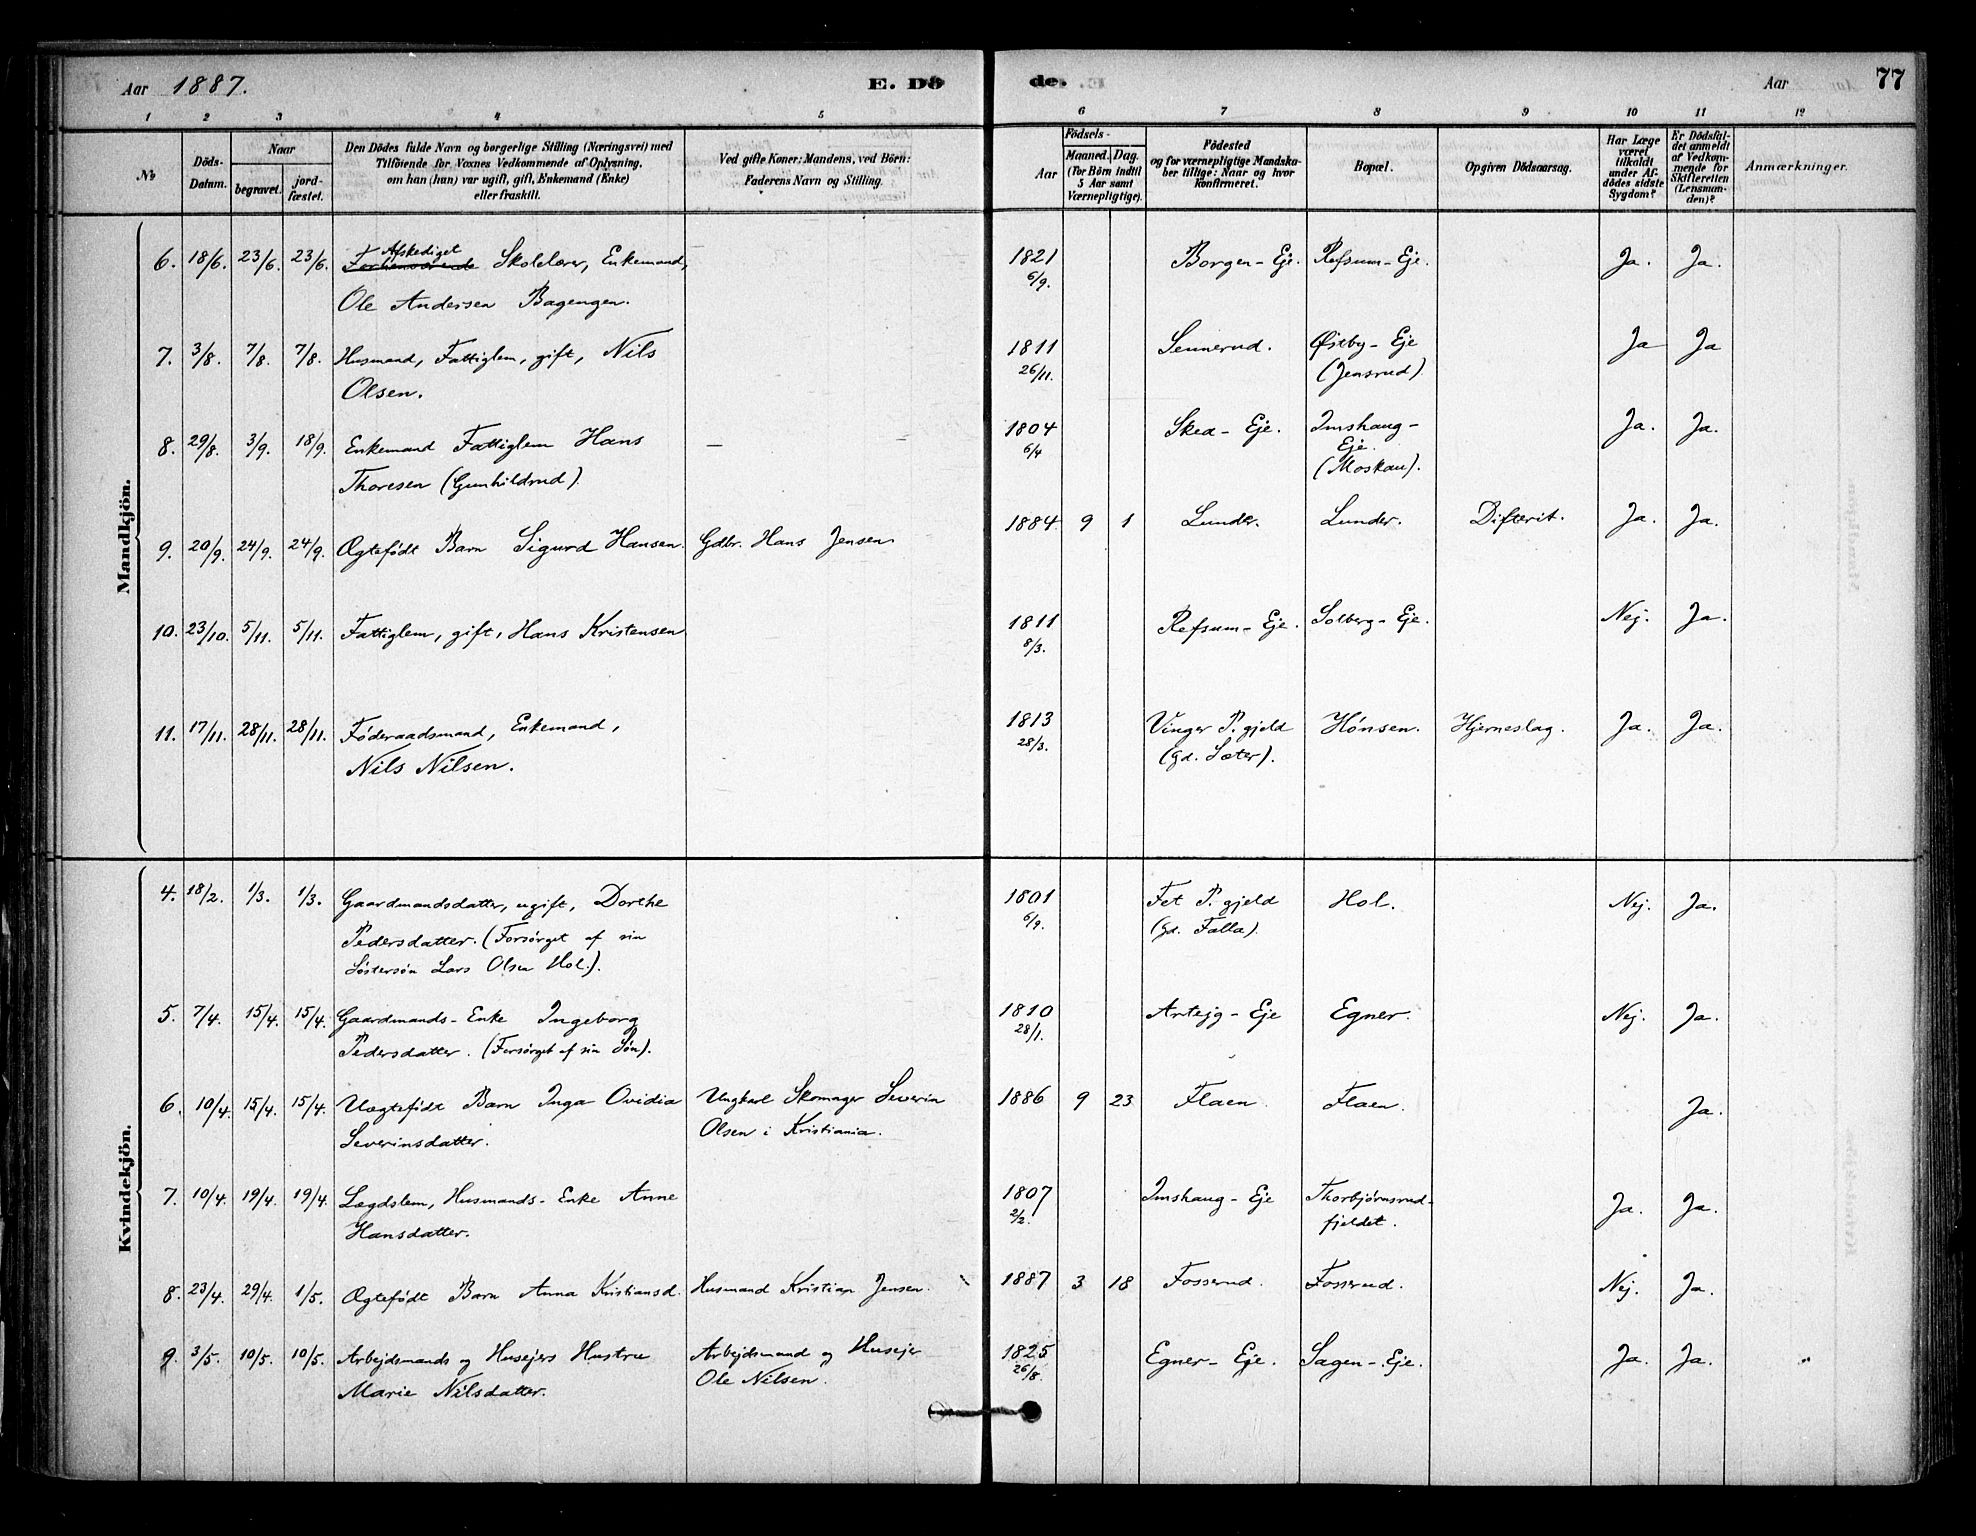 Aar 1887. E. Dö de. Aar 77
1 2 3 4 5 6 7 8 9 10 11 12
No
Döds-Datum.
Naar
begravet. jordfæstet.
Den Dödes fulde Navn og borgerlige Stilling (Næringsvei) med
Tilföiende for Voxnes Vedkommende af Oplysning,
om han (hun) var ugift, gift, Enkemand (Enke)
eller fraskilt.
Ved gifte Koner: Mandens, ved Börn:
Faderens Navn og Stilling.
Födsels-
Aar
Maaned. Dag.
(for Börn indtil
5 Aar samt
Værnepligtige).
Födested
og for værnepligtige Mandskaber tillige: Naar og hvor
konfirmeret.
Bopæl.
Opgiven Dödsaarsag.
Har Læge
været
tilkaldt
under Afdödes sidste
Sygdom?
Er Dödsfaldet anmeldt
af Vedkommende for
Skifteretten
(Lensmanden)?
Anmærkninger.
Mandkjön.
Afskediget
6. 18/6. 23/6. 23/6. Forhenværende Skolelærer, Enkemand, 1821 Borgen-Eje. Refsum-Eje. Ja. Ja.
Ole Andersen Bagengen. 6/9.
7. 3/8. 7/8. 7/8. Husmand, Fattiglem, gift, Nils 1811 Sennerud. Østby-Eje Ja Ja
Olsen. 26/11. (Jensrud)
8. 29/8. 3/9. 18/9. Enkemand Fattiglem Hans — 1804 Skea-Eje. Imshaug-
Eje. Ja. Ja.
Thoresen (Gunhildrud) 6/4 (Moskau).
9. 20/9. 24/9. 24/9. Ægtefødt Barn Sigurd Hansen. Gdbr. Hans Jensen 1884 9 1 Lunder. Lunder. Difterit. Ja. Ja.
10. 23/10. 5/11. 5/11. Fattiglem, gift, Hans Kristensen 1811 Refsum-Eje. Solberg-Eje. Nej. Ja.
8/3.
11. 17/11. 28/11. 28/11. Føderaadsmand, Enkemand, 1813 Vinger P.gjeld Hønsen. Hjerneslag. Ja. Ja.
Nils Nilsen. 28/3. (gd. Sæter).
Kvindekjön.
4. 18/2. 1/3. 1/3. Gaardmandsdatter, ugift, Dorthe 1801 Fet P.gjeld Hol. Nej. Ja.
Pedersdatter. (Forsørget af sin 6/9. (gd. Falla).
Søstersøn Lars Olsen Hol.).
5. 7/4. 15/4. 15/4. Gaardmands-Enke Ingeborg 1810 Artejg-Eje Egner. Nej. Ja.
Pedersdatter. (Forsørget af sin Søn). 28/1.
6. 10/4. 15/4. 15/4. Uægtefødt Barn Inga Ovidia Ungkarl Skomager Severin 1886 9 23 Flaen. Flaen. Ja.
Severinsdatter. Olsen i Kristiania.
7. 10/4. 19/4. 19/4. Lægdslem, Husmands-Enke Anne 1807 Imshaug-Eje Thorbjørnsrud- Ja. Ja.
Hansdatter. 2/2. fjeldet.
8. 23/4. 29/4. 1/5. Ægtefødt Barn Anna Kristiansd. Husmand Kristian Jensen. 1887 3 18 Fosserud. Fosserud. Nej. Ja.
9. 3/5. 10/5. 10/5. Arbejdsmands og Husejers Hustru Arbejdsmand og Husejer 1825 Egner-Eje. Sagen-Eje. Ja. Ja.
Marie Nilsdatter. Ole Nilsen. 26/8.